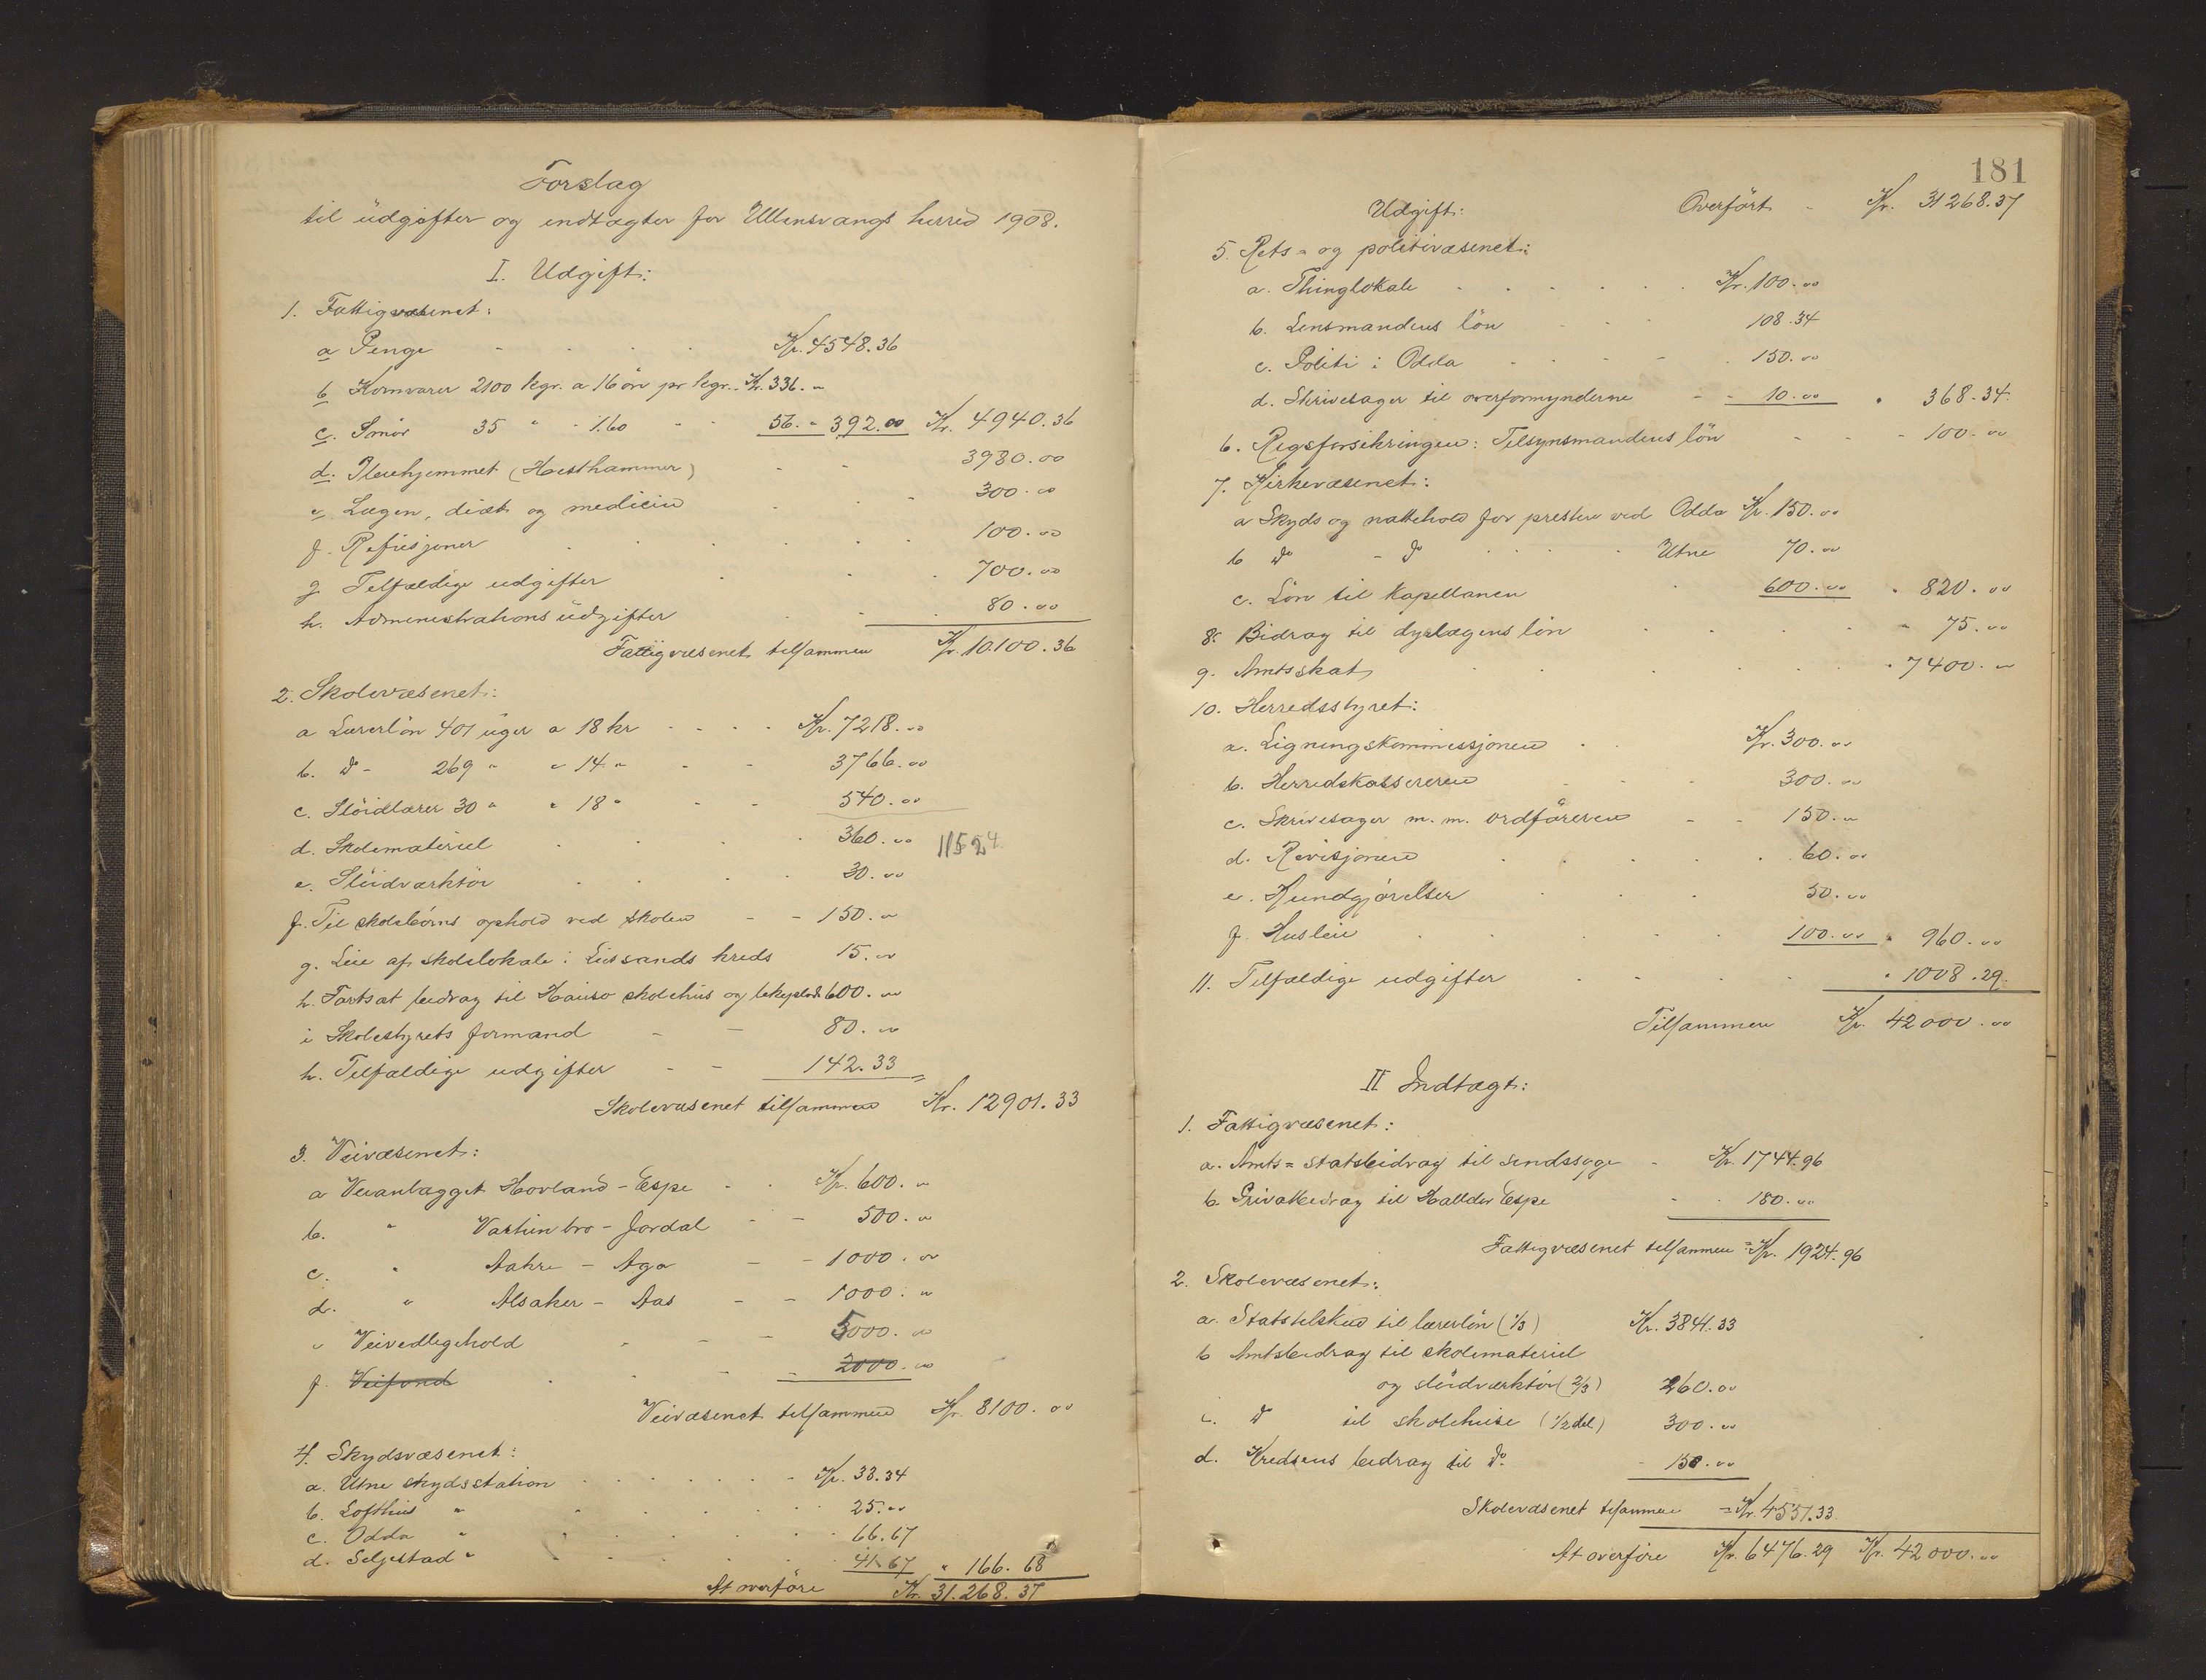 Forslag
til udgifter og indtægter for Ullensvangs herred 1908.
I. Udgift:
1. Fattigvæsenet:
a Penge Kr. 4548.36
b Kornvarer 2100 kgr. a 16 öre pr kgr. Kr. 336. "
c. Smör 35 " - 1.60 56. " 392.00 Kr. 4940.36
d. Pleiehjemmet (Hesthammer) 3980.00
e Lægen, diæt og medicin 300.00
f. Refusjoner 100.00
g Tilfældige udgifter 700.00
h. Administrationsudgifter 80.00
Fattigvæsenet tilsammen Kr. 10.100.36
2. Skolevæsenet:
a Lærerlön 401 uger a 18 kr Kr. 7218.00
b. Do - 269 " a 14 " 3766.00
c. Slöidlærer 30 " a 18 " 540.00
d. Skolemateriel 360.00 11524
e. Slöidværktöi 30.00
f. Til skolebörns ophold ved skolen 150.00
g. Leie af skolelokale i Lussands kreds 15.00
h. Fortsat bidrag til Hauso skolehus og lekeplads 600.00
i Skolestyrets formand 80.00
k. Tilfældige udgifter 142.33
Skolevæsenet tilsammen Kr. 12901.33
3. Veivæsenet:
a Veianlægget Hovland - Espe Kr. 600. "
b. " Vastun bro - Jordal 500. "
c. " Aahre - Aga 1000. "
d. " Alsaker - Aas 1000. "
e Veivedligehold 5000.00
f. Veifond 2000.00
Veivæsenet tilsammen Kr. 8100.00
4. Skydsvæsenet:
a. Utne skydsstation Kr. 33.34
b. Lofthus " 25.00
c. Odda " 66.67
d. Seljestad " 41.67 " 166.68
At overföre Kr. 31.268.37
181
Udgift: Overfört Kr. 31268.37
5. Rets- og politivæsenet:
a. Thinglokale Kr. 100.00
b. Lensmandens lön 108.34
c. Politi i Odda 150.00
d. Skrivesager til overformynderne 10.00 " 368.34.
6. Rigsforsikringen: Tilsynsmandens lön 100.00
7. Kirkevæsenet:
a Skyds og nattehold for presten ved Odda Kr. 150.00
b Do - Do Utne 70.00
c. Lön til Kapellanen 600.00 " 820.00
8. Bidrag til dyrlægens lön " 75.00
9. Amtsskat " 7400. "
10. Herredsstyret:
a. Ligningskommissjonen Kr. 300.00
b. Herredskassereren 300.00
c. Skrivesager m. m. ordföreren 150. "
d. Revisjonen 60.00
e. Kundgjörelser 50.00
f. Husleie 100.00 " 960.00
11. Tilfældige udgifter " 1008.29.
Tilsammen Kr. 42000.00
II Indtægt:
1. Fattigvæsenet:
a. Amts= statsbidrag til sindssyge Kr. 1744.96
b. Privatbidrag til Halldor Espe 180.00
Fattigvæsenet tilsammen = Kr. 1924.96
2. Skolevæsenet:
a. Statstilskud til lærerlön (1/3) Kr. 3841.33
b Amtsbidrag til skolemateriel
og slöidværktöi (2/3) 260.00
c. Do til skolehuse (1/2 del) 300.00
d. Kredsens bidrag til Do. 150.00
Skolevæsenet tilsammen = Kr. 4551.33.
At overföre Kr. 6476.29 Kr. 42000.00